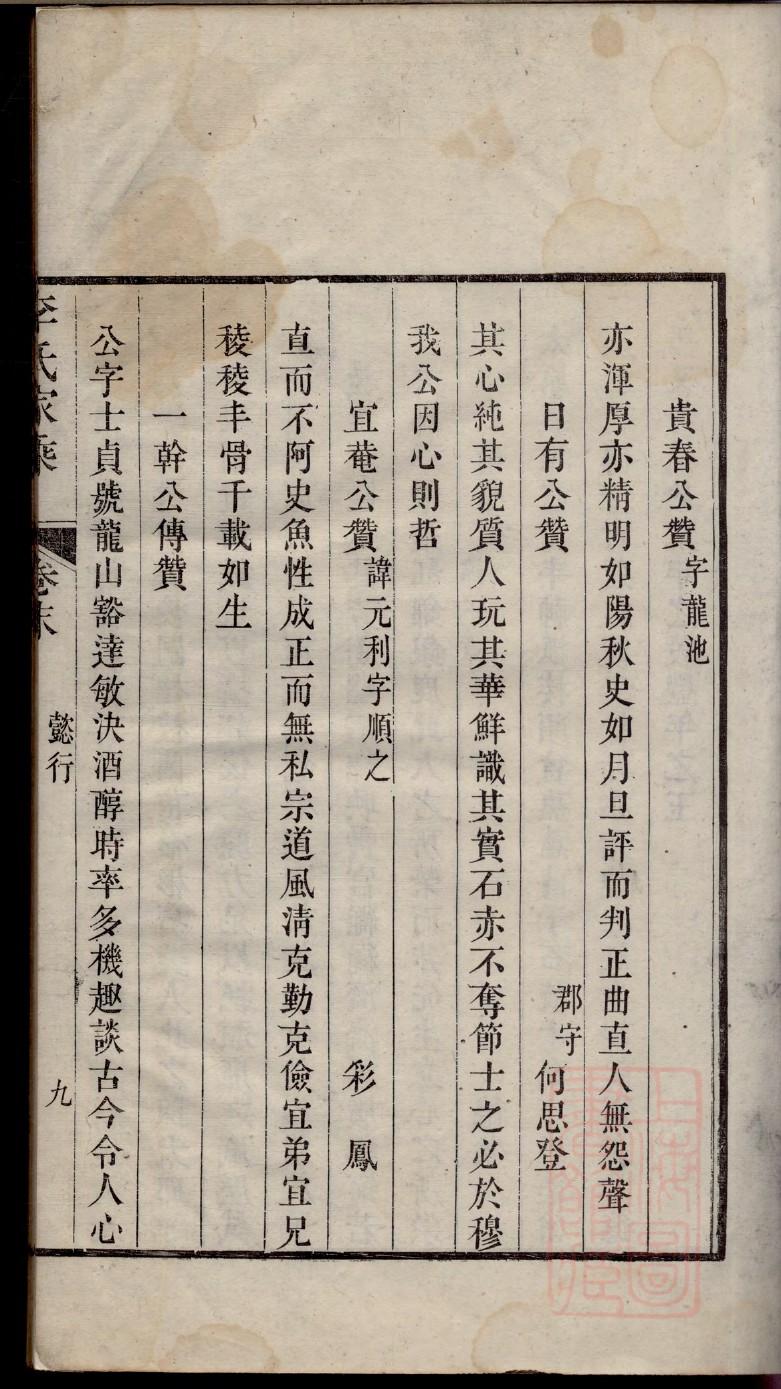 貴春公贊 字龍池
亦渾厚亦精明如陽秋史如月旦評而判正曲直人無怨聲
日有公贊 郡守何思登
其心純其貌質人玩其華鮮識其實石赤不奪節士之必於穆
我公因心則哲
宜菴公贊 諱元利字順之 彩鳳
直而不阿史魚性成正而無私宗道風淸克勤克儉宜弟宜兄
稜稜丰骨千載如生
一幹公傳贊
公字士貞號龍山豁達敏決酒醇時率多機趣談古今令人心
李氏家乘 卷末 懿行 九